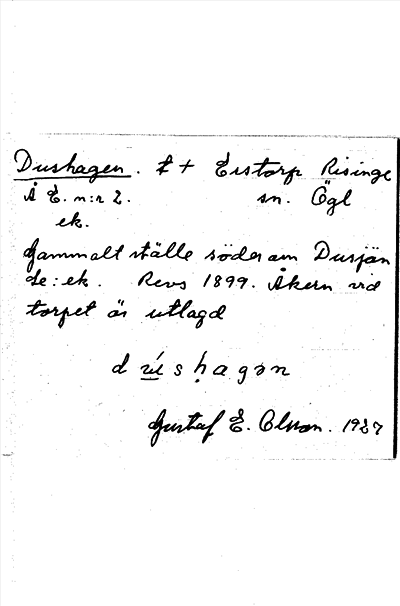 Dushagen. ł + Eistorp Risinge
Å E. n:r 2. sn. Ögl
ek.
Gammalt ställe söder om Dusjän
de: ek. Revs 1899. Åkern vid
torpet är utlagd
d ú s ḥ a g ə n
Gustaf E. Olsson. 1927